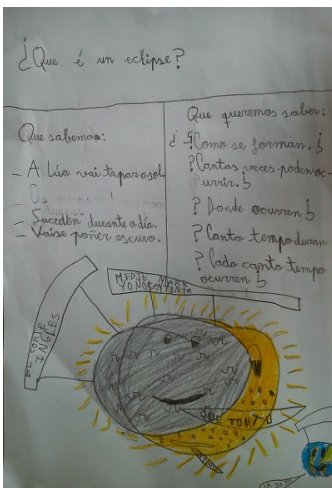 ¿Que é un eclipse?
Que sabemos:
- A Lúa vai tapar o sol
- Suceden durante o día.
- Vaise poñer escuro.
Que queremos saber:
¿Como se forman.
?Cantas veces poden oc-
urrir.
? Donde ocurren
? Canto tempo duran
? Cada canto tempo
ocurren
MEDIE MARK
YO NO SOY TONTO
INGLES